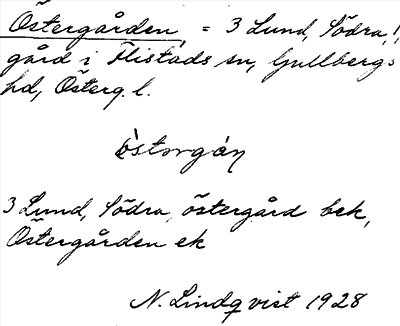 Östergården, = 3 Lund, Södra,!,
gård i Flistads sn, Gullbergs
hd, Österg. l.
östorgán
3 Lund, Södra, östergård bek,
Östergården ek
N. Lindqvist 1928